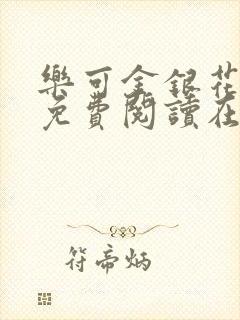 樂可金銀花
免費閱讀在
符帝炳